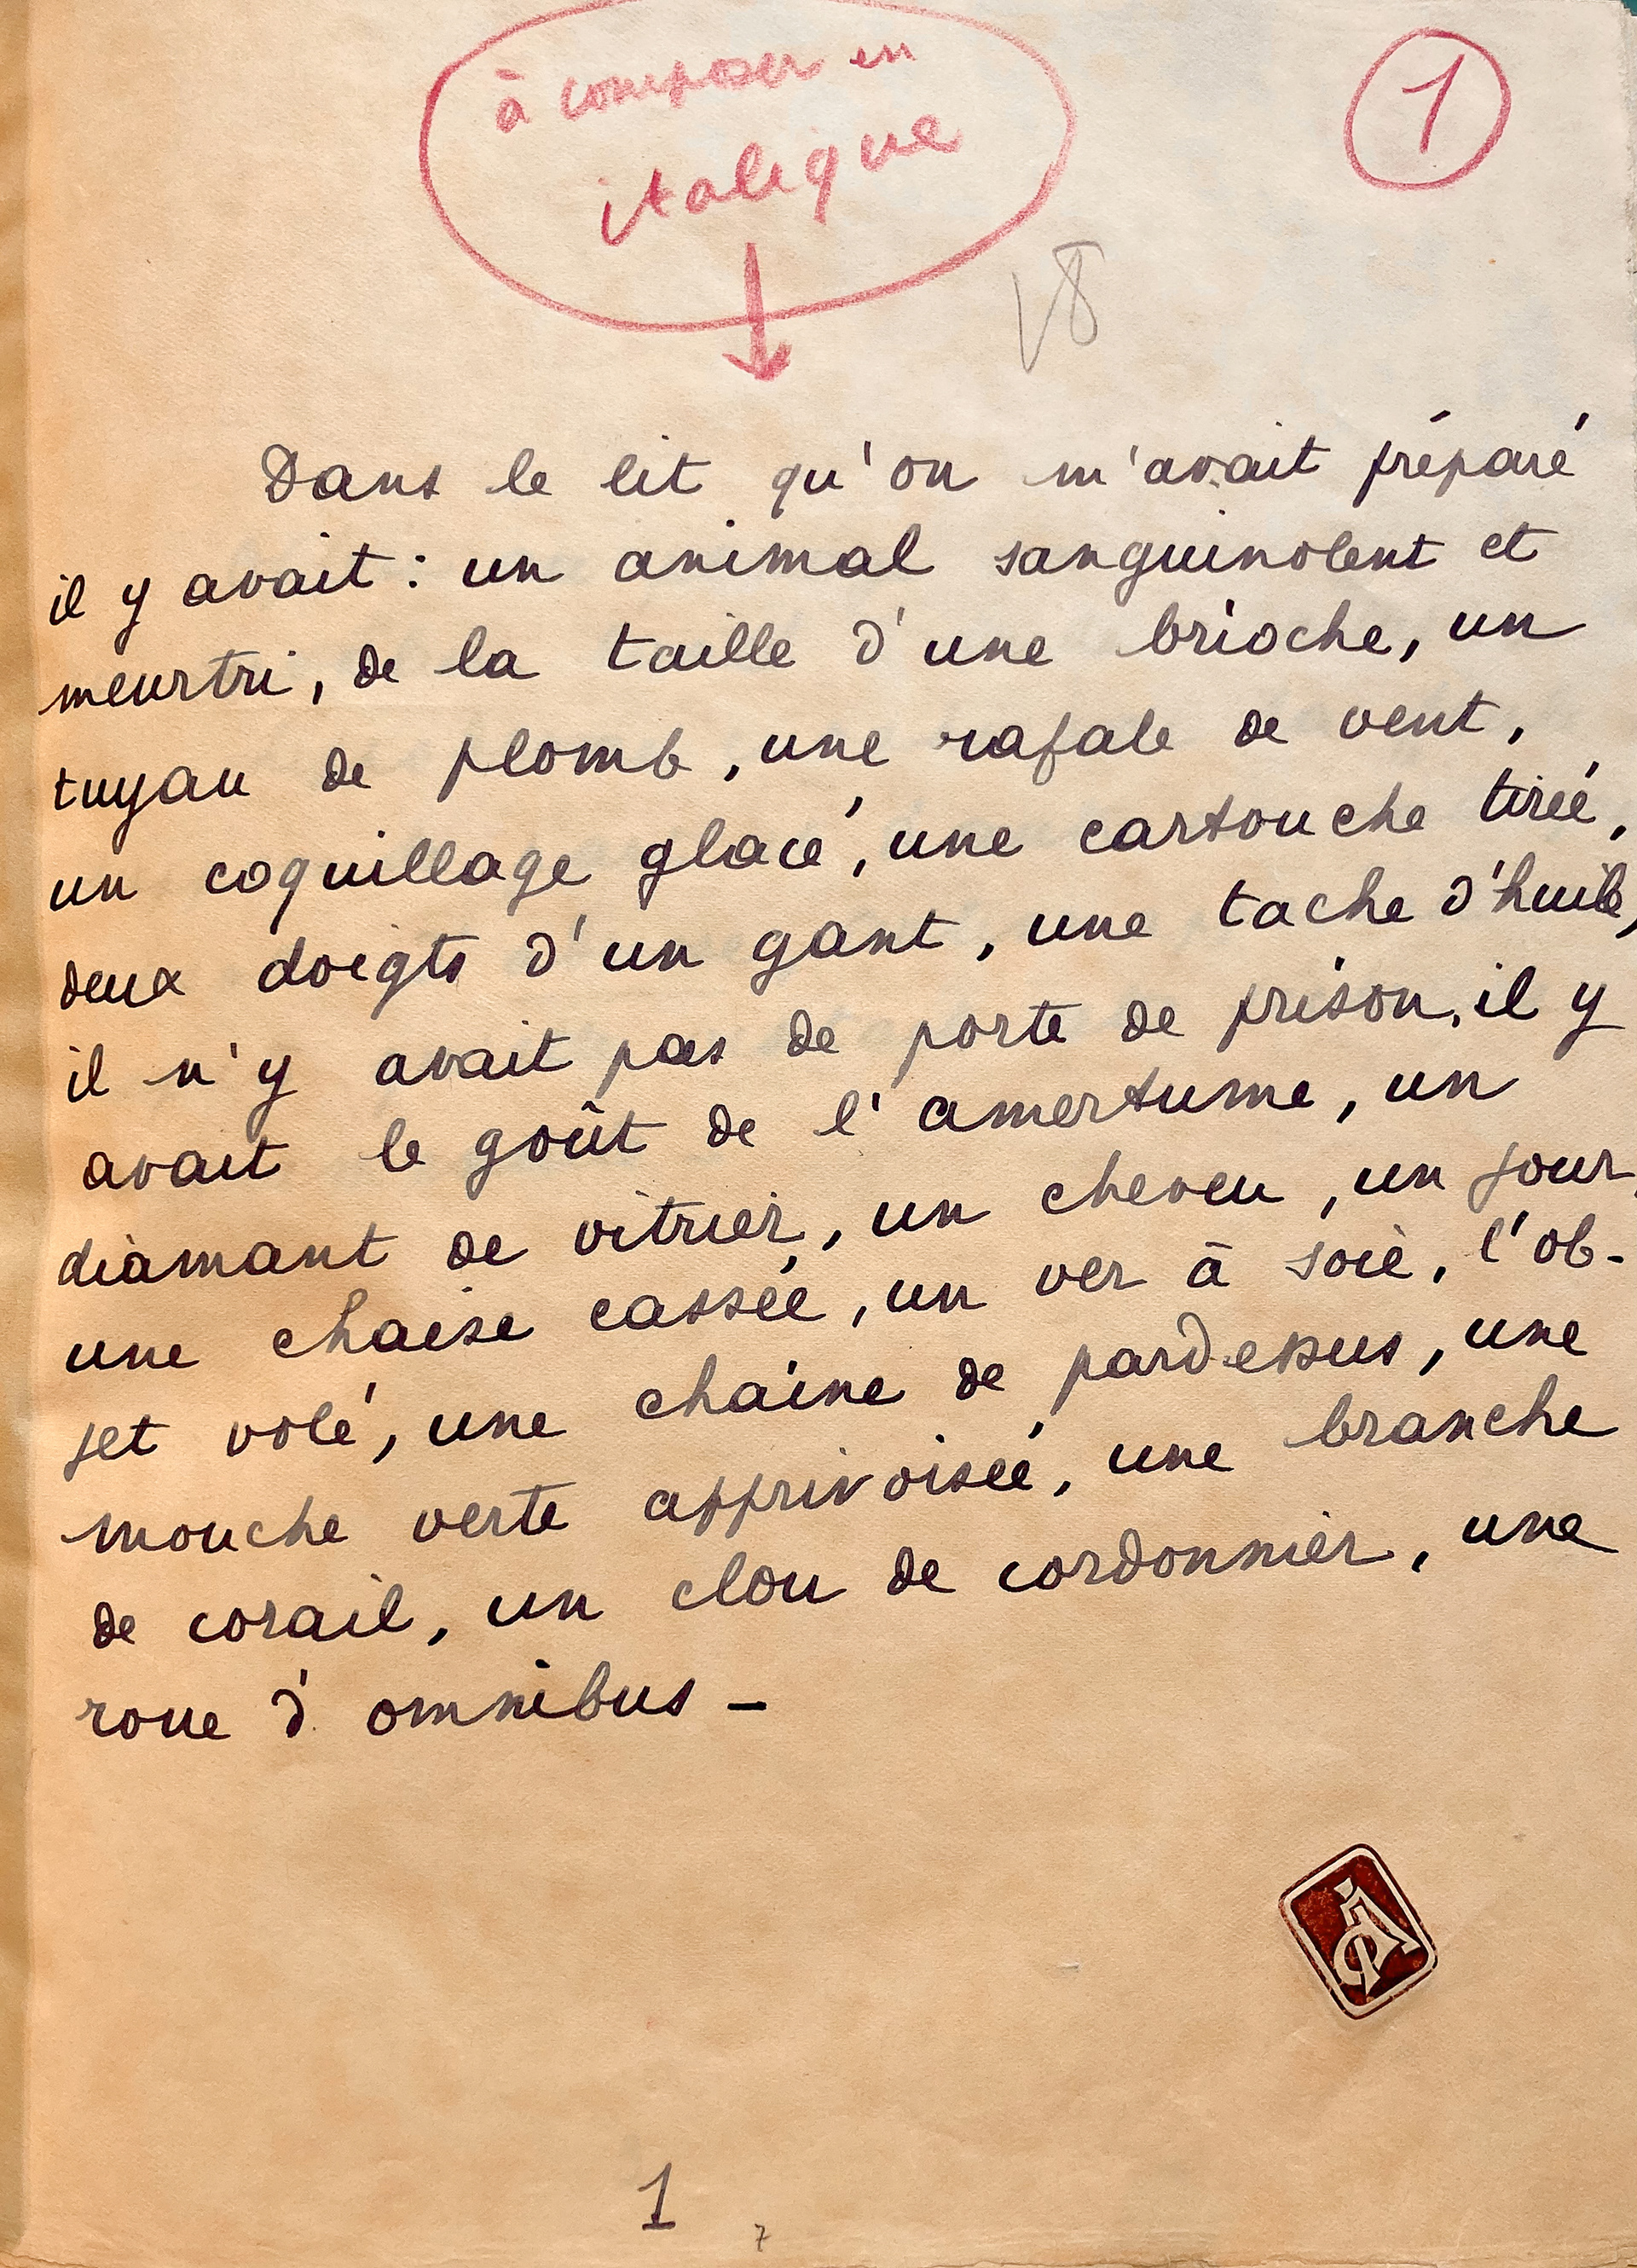 à composer en
italique
1
18
Dans le lit qu'on m'avait préparé
il y avait : un animal sanguinolent et
meurtri, de la taille d'une brioche, un
tuyau de plomb, une rafale de vent,
un coquillage glacé, une cartouche tirée,
deux doigts d'un gant, une tache d'huile,
il n'y avait pas de porte de prison, il y
avait le goût de l'amertume, un
diamant de vitrier, un cheveu, un jour,
une chaise cassée, un ver à soie, l'ob-
jet volé, une chaîne de pardessus, une
mouche verte apprivoisée, une branche
de corail, un clou de cordonnier, une
roue d'omnibus –
1
7